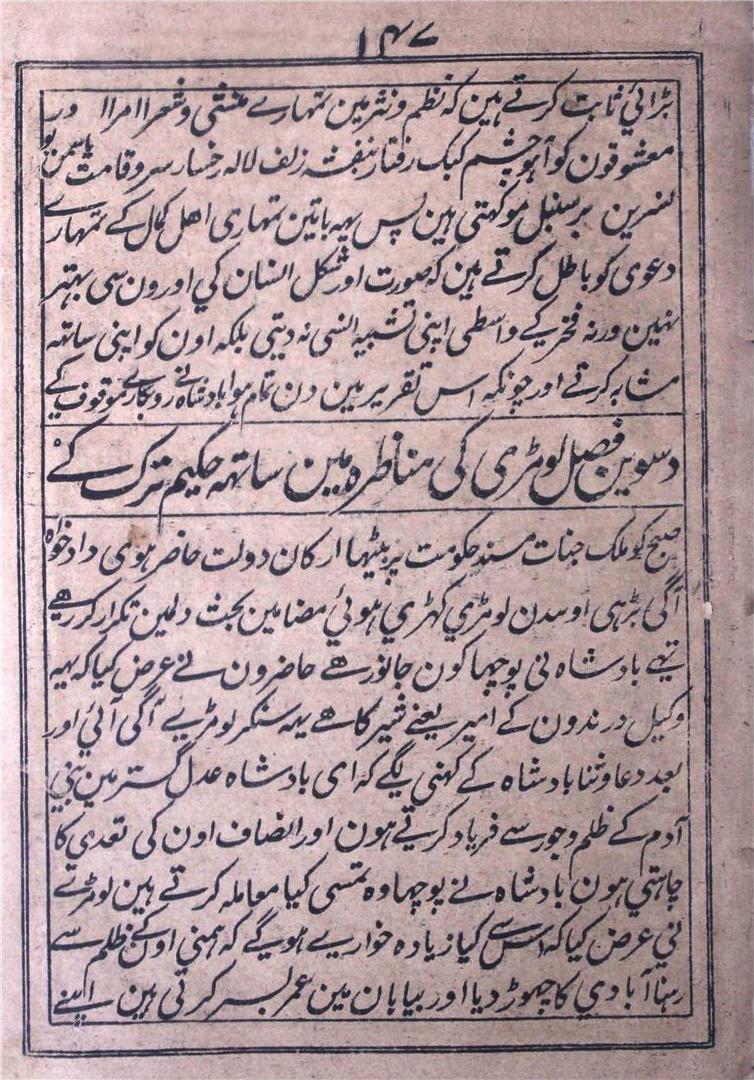 ۱۴۷
بڑائي ثابت کرتے ہین کہ نظم ونثر مین تمہارے منشی وشعرا امرا اور
معشوقون کو آہو چشم کبک رفتار بنفشہ زلف لالہ رخسار سرو قامت یاسمن بو
نسرین بر سنبل مو کہتی ہین پس یہہ باتین تمہاری اهل کمال کے تمہارے
دعوی کو باطل کرتے ہین کہ صورت اور شکل انسان کي اورون سی بہتر
نہین ورنہ فخر کے واسطی اپنی تشبیہ انسی نہ دیتی بلکہ اون کو اپنی ساتھہ
مشابہ کرتے اور چونکہ اس تقریر مین دن تمام ہوا بادشاہ نے روبکارے موقوف کے
دسوین فصل لومڑی کی مناظرہ مین ساتھہ حکیم ترک کے
صبح کو ملک جنات مسند حکومت پر بیٹہا ارکان دولت حاضر ہوی داد خواہ
آگی بڑہی اوسدن لومڑي کہڑي ہوئي مضامین بحث دلمین تکرار کر رهے
تہے بادشاہ نی پوچہا کون جانور هے حاضرون نے عرض کیا کہ یہہ
وکیل درندون کے امیر یعنے شیر کا هے یہہ سنکر لومڑیے آگی آئي اور
بعد دعا وثنا بادشاہ کے کہنی لگے کہ ای بادشاہ عدل گستر مین بنی
آدم کے ظلم وجور سے فریاد کرتے ہون اور انصاف اون کی تعدی کا
چاہتي ہون بادشاہ نے پوچہا وہ تمسی کیا معاملہ کرتے ہین لومڑے
نی عرض کیا کہ اس سے کیا زیادہ خواریے ہویگے کہ ہمنی اونکے ظلم سے
رہنا آبادي کا چہوڑ دیا اور بیابان مین عمر بسر کرتی ہین اپنے